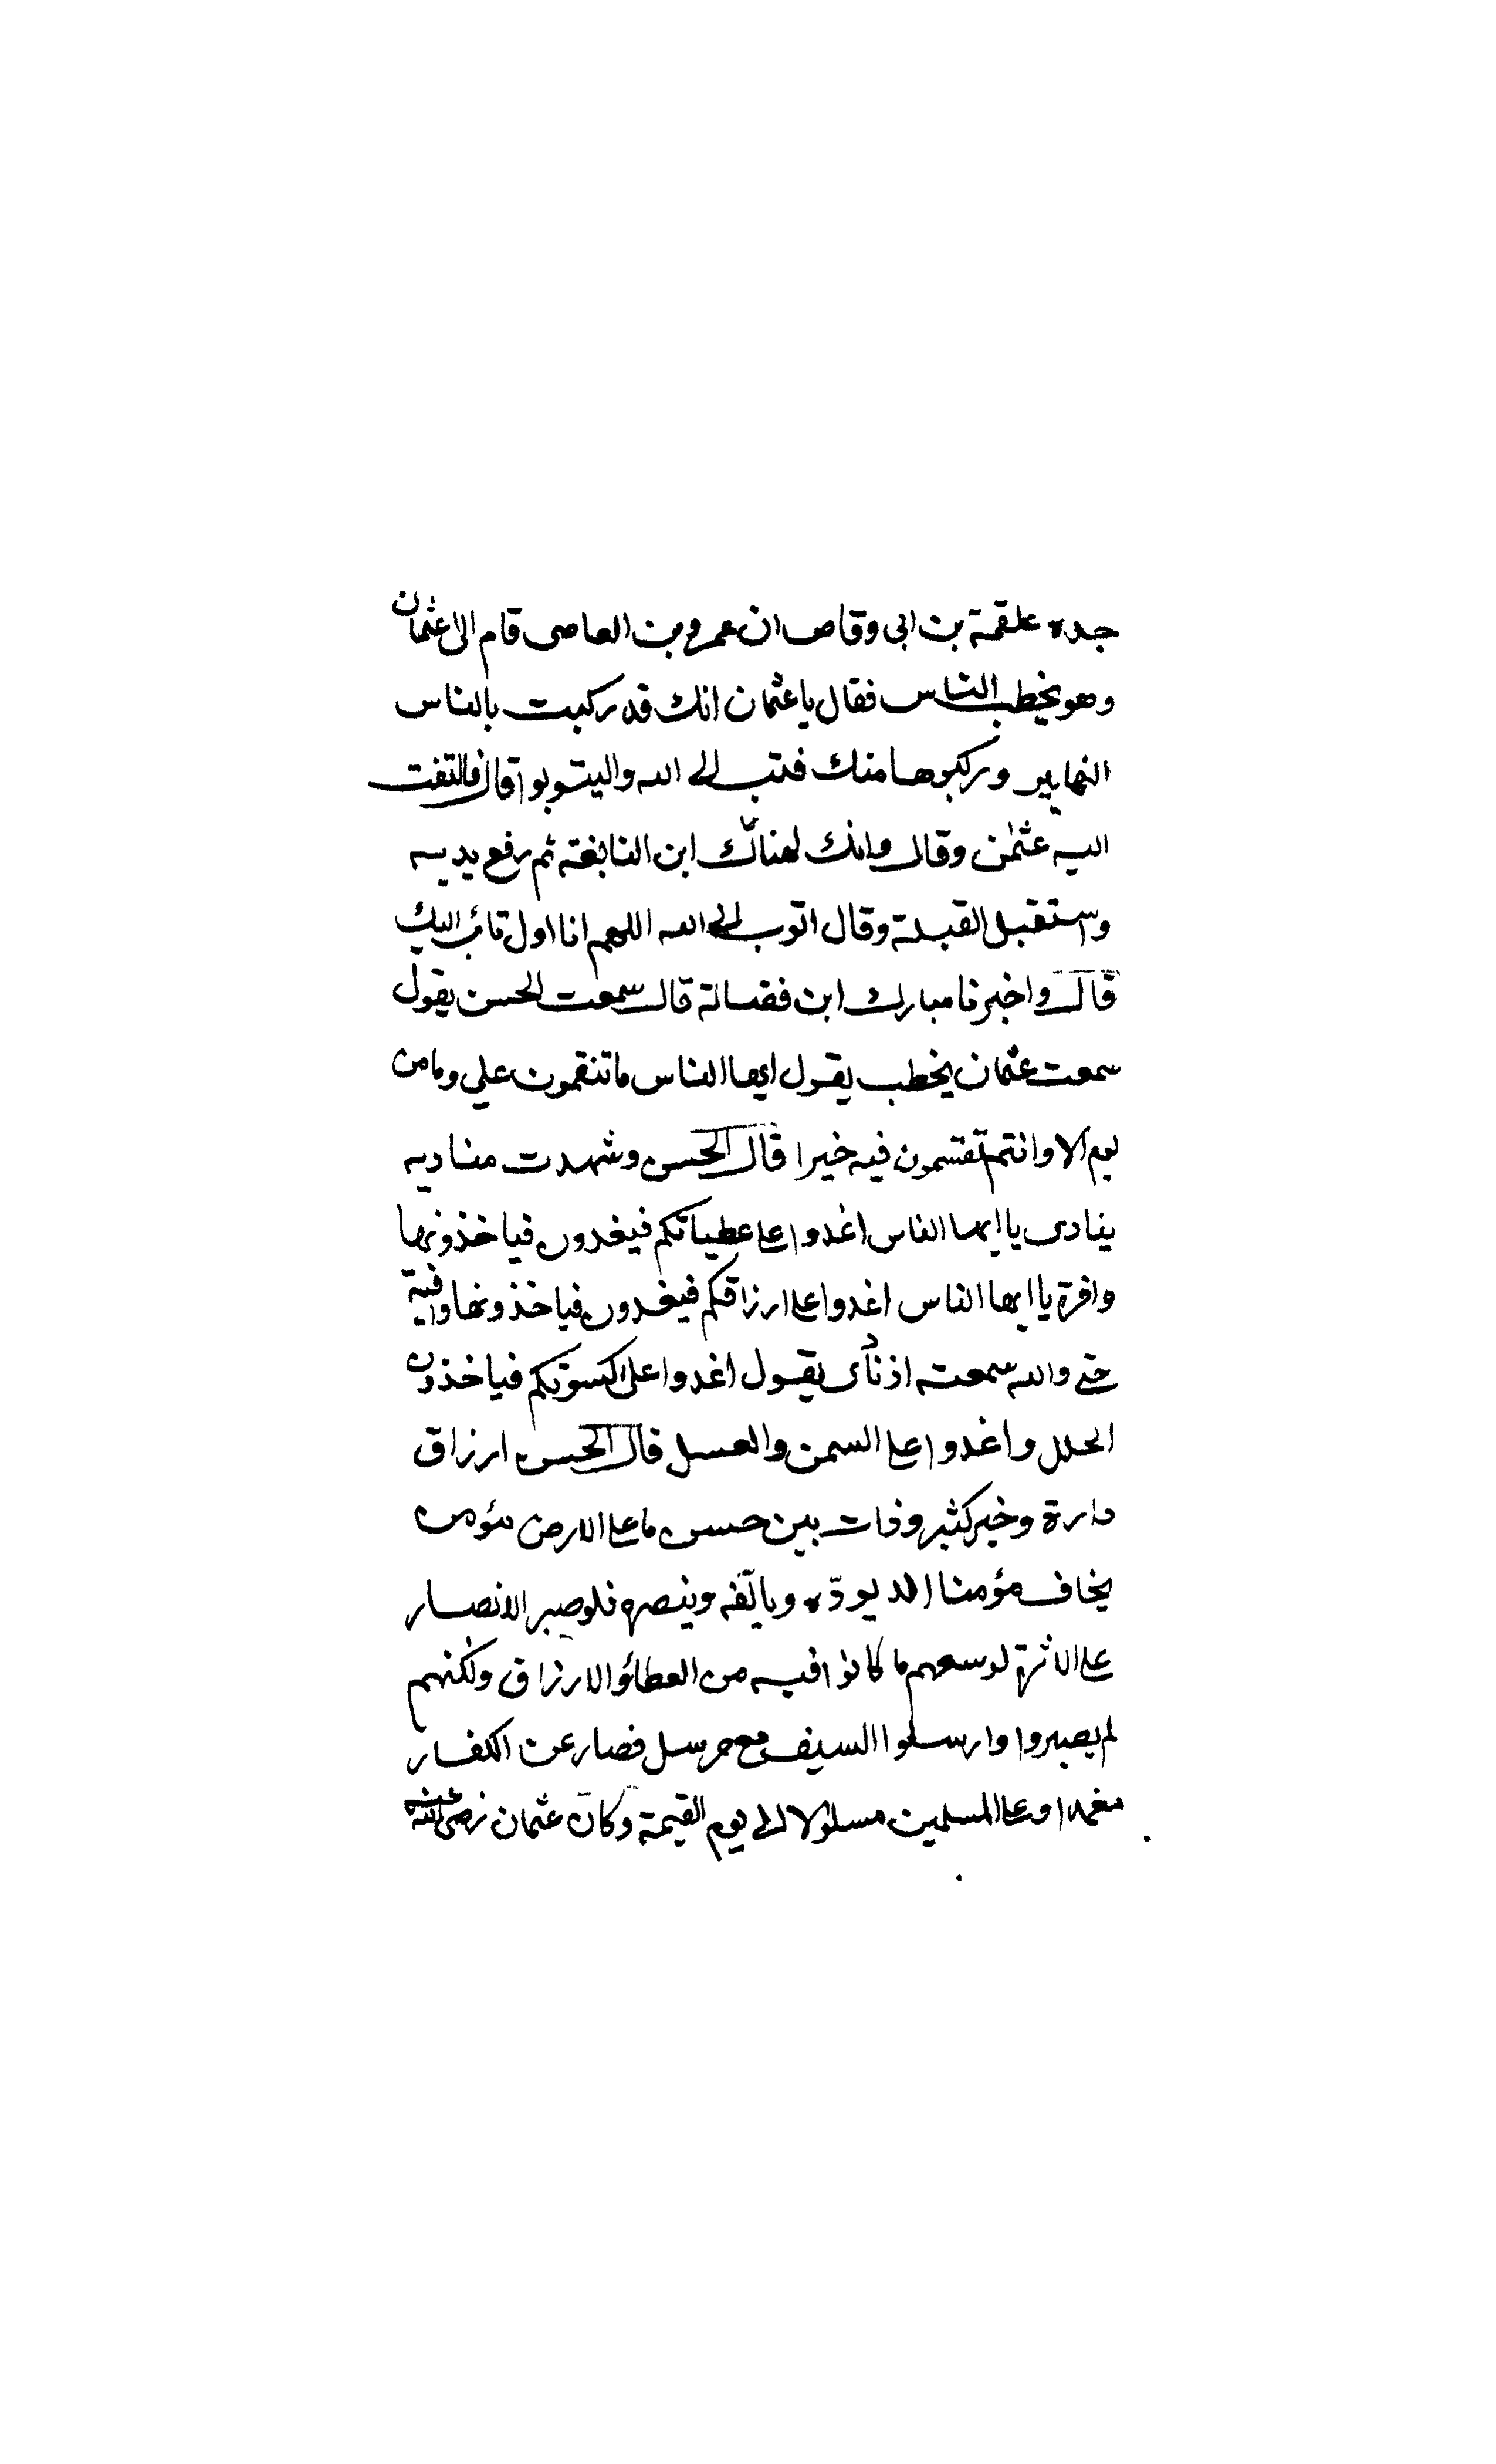 جده علقمة بن ابى وقاص ان عمرو بن العاصى قام الى عثمان
وهو يخطب الناس فقال يا عثمان انك قد ركبت بالناس
النهابير وركبوها منك فتب الى الله واليتوبوا قال فالتفت
اليه عثمٰن وقال وانك لهناك ابن النابغة ثم رفع يديه
واستقبل القبلة وقال اتوب الى الله اللهم انا اول تائب اليك
قال واخبرنا مبارك ابن فضالة قال سمعت الحسن يقول
سمعت عثمان يخطب يقول ايها الناس ما تنقمون علي وما من
يوم الا وانتم تقتسمون فيه خيرا قال الحسن وشهدت مناديه
ينادى يا ايها الناس اغدوا على عطياتكم فيغدون فياخذونها
وافرة يا ايها الناس اغدوا على ارزاقكم فيغدون فياخذونها وافية
حتى والله سمعته اذناى يقول اغدوا على كسوتكم فياخذون
الحلل واغدوا على السمن والعسل قال الحسن ارزاق
دارة وخير كثير وذات بين حسن ما على الارض مؤمن
يخاف مؤمنا الا يودّه ويألفه وينصره فلو صبر الانصار
على الاثرة لوسعهم ما كانوا فيه من العطاؤ الارزاق ولكنهم
لم يصبروا وارسلوا السيف مع من سل فصار عن الكفار
مغمدا وعلى المسلمين مسلولا الى يوم القيمة وكان عثمان رضى الله عنه